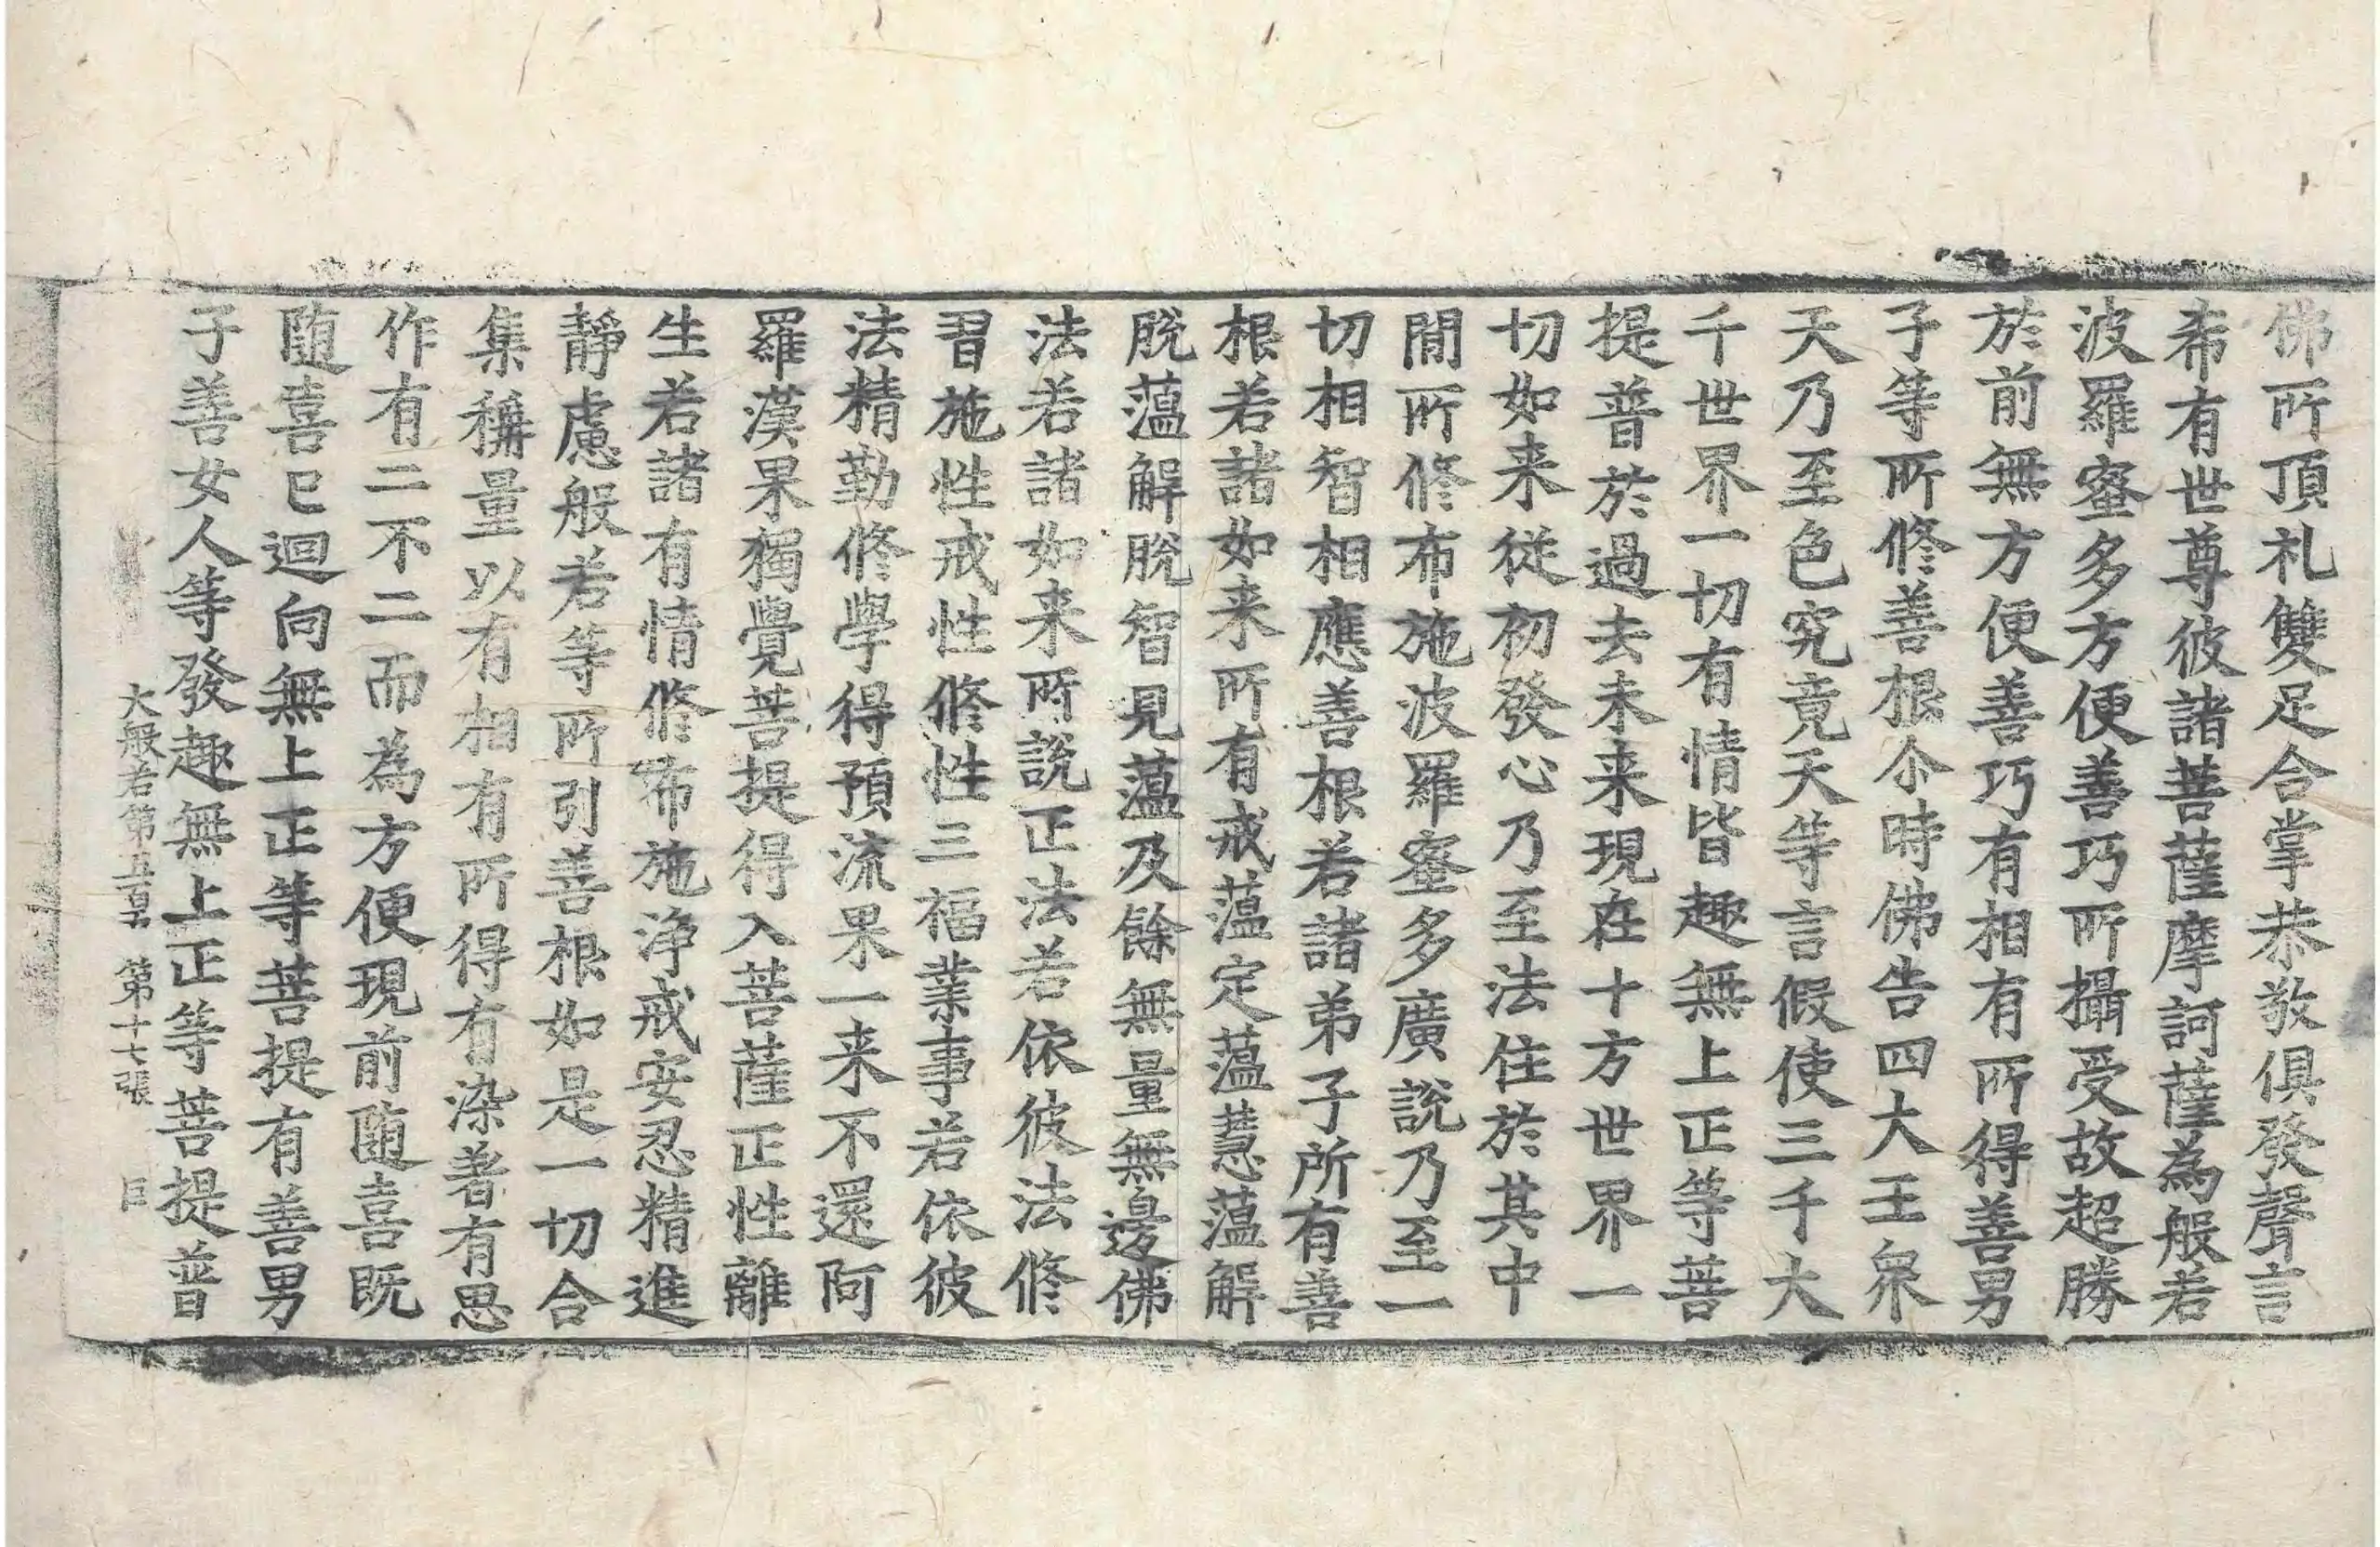 佛所頂礼雙足合掌恭敬俱發聲言
希有世尊彼諸菩薩摩訶薩為般若
波羅蜜多方便善巧所攝受故超勝
於前無方便善巧有相有所得善男
子等所修善根尒時佛告四大王衆
天乃至色究竟天等言假使三千大
千世界一切有情皆趣無上正等菩
提普於過去未来現在十方世界一
切如来從初發心乃至法住於其中
閒所修布施波羅蜜多廣說乃至一
切相智相應善根若諸弟子所有善
根若諸如来所有戒蘊定蘊慧蘊解
脫蘊解脫智見蘊及餘無量無邊佛
法若諸如来所說正法若依彼法修
習施性戒性修性三福業事若依彼
法精勤修學得預流果一来不還阿
羅漢果獨覺菩提得入菩薩正性離
生若諸有情修布施淨戒安忍精進
靜慮般若等所引善根如是一切合
集稱量以有相有所得有染著有思
作有二不二而為方便現前随喜既
随喜已迴向無上正等菩提有善男
子善女人等發趣無上正等菩提普
大般若第五百 第十七張 巨